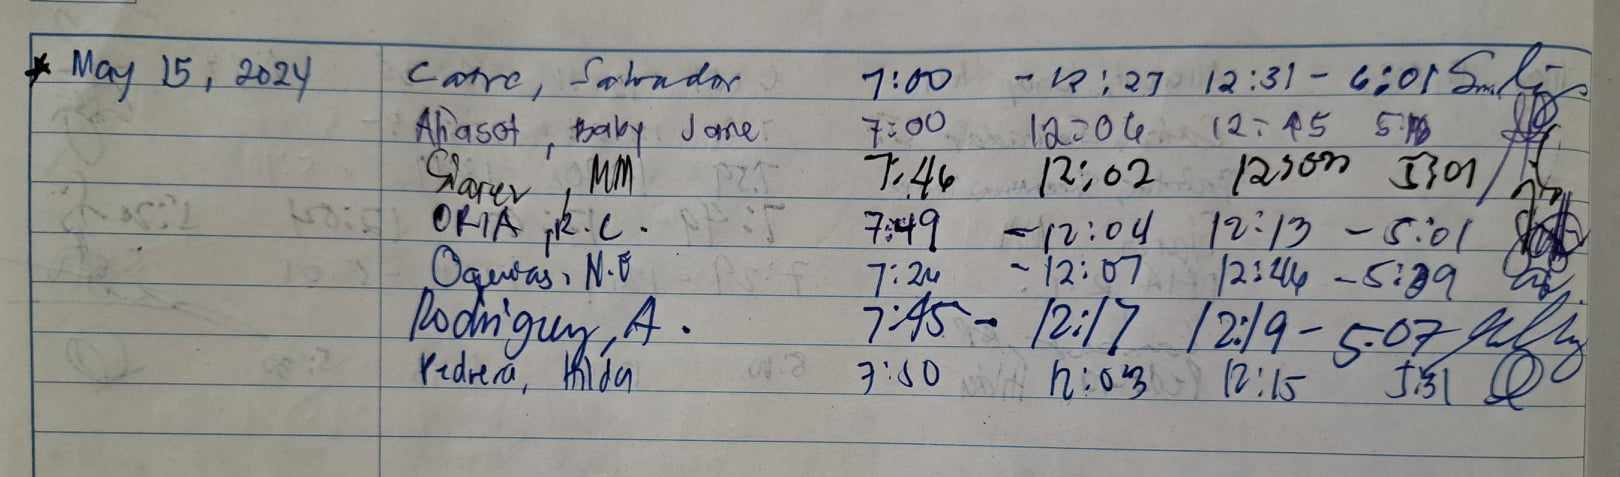 May 15, 2024 Salvador 7:00 - 12:27 12:31 - 6:01
Aliasot, Baby Jane 7:00 12:04 12:45
, MM 7:46 12:02 5:01
ORIA, R.C. 7:49 - 12:04 12:13 - 5:01
N.O 7:24 - 12:07 12:44 - 5:39
Rodriguez, A. 7:45 - 12:17 12:19 - 5:07
Pedrera, Hilda 7:50 12:03 12:15 5:31